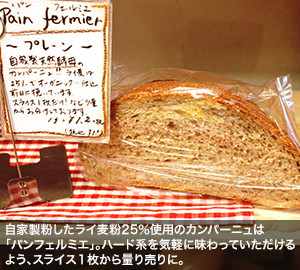 パン フェルミエ
Pain fermier
〜プレーン〜
自家製天然酵母の
カンパーニュ
スライス1枚だけ!など少量
からお分けしております
自家製粉したライ麦粉25%使用のカンパーニュは
「パンフェルミエ」。ハード系を気軽に味わっていただける
よう、スライス1枚から量り売りに。